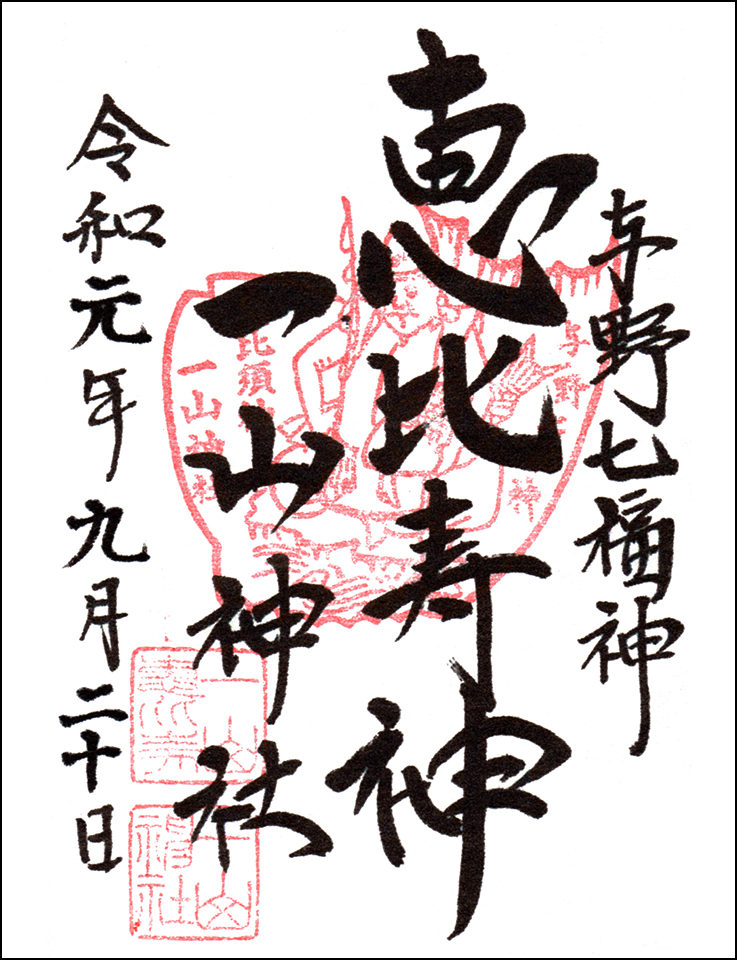 与野七福神
恵比寿神
一山神社
令和元年九月二十日
一山神社
一山神社